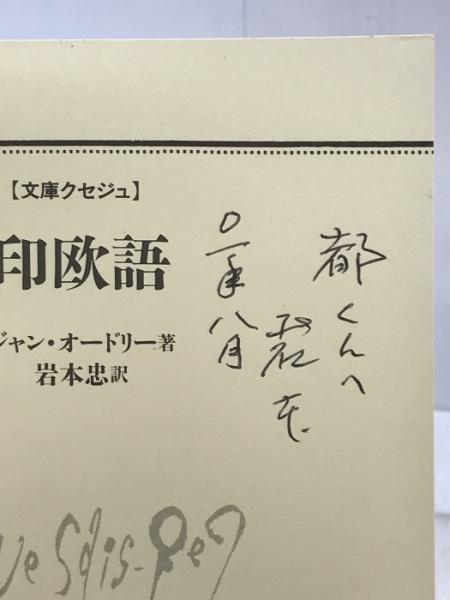 【文庫クセジュ】
印欧語
ジャン・オードリー著
岩本忠訳
都くんへ
八月
ue Sais-Je?